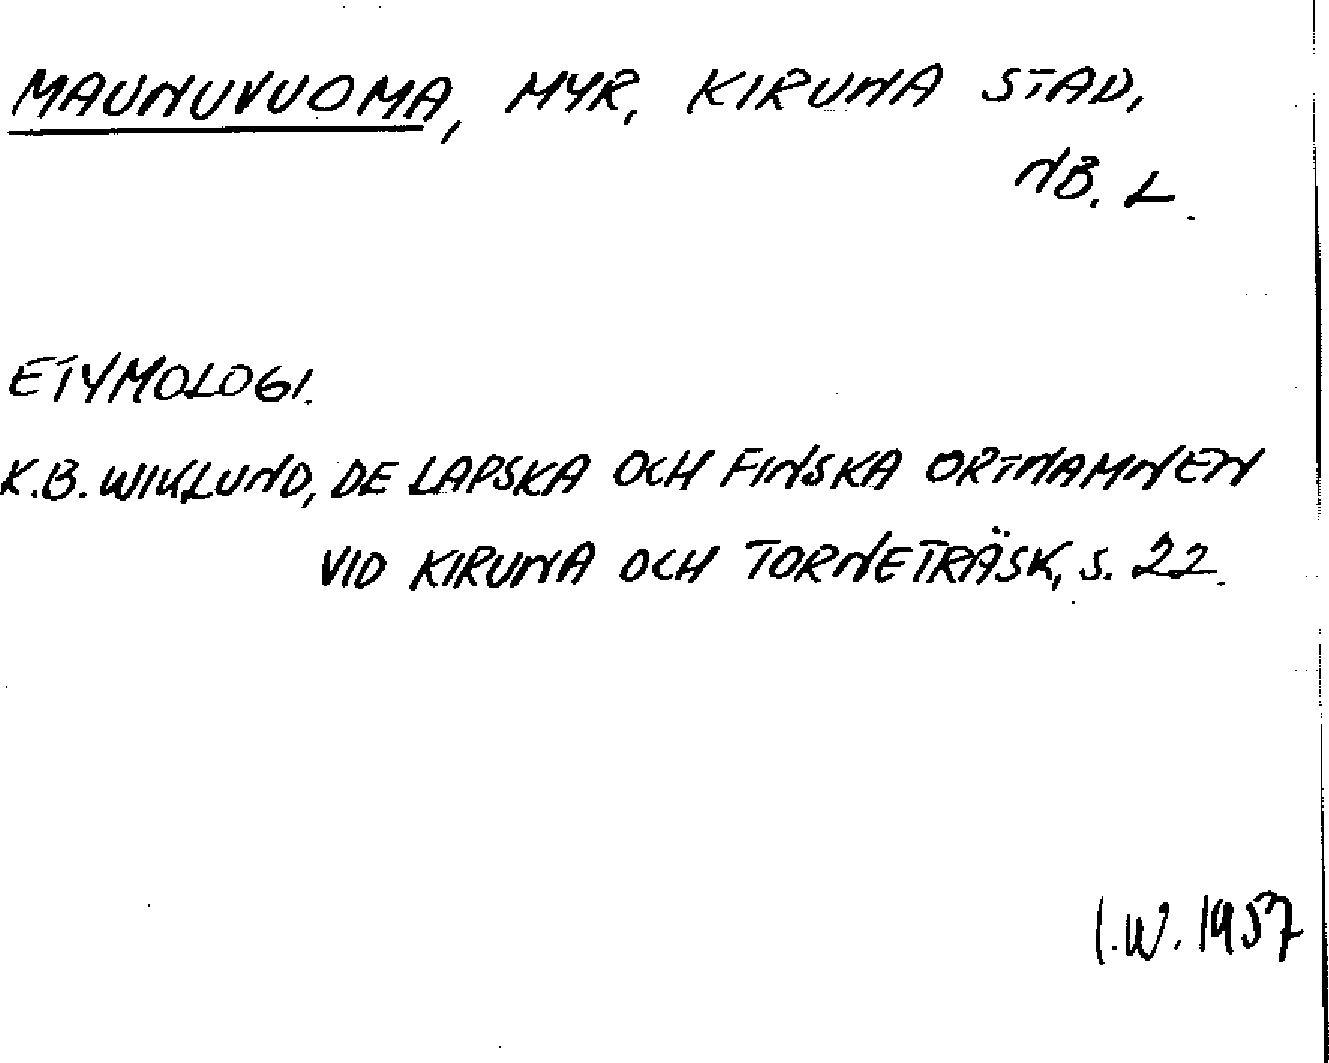 MAUNUVUOMA, MYR, KIRUNA STAD,
NB. L.
ETYMOLOGI.
K.B. WIKLUND, DE LAPSKA OCH FINSKA ORTNAMNEN
VID KIRUNA OCH TORNETRÄSK, S. 22.
I.W. 1957